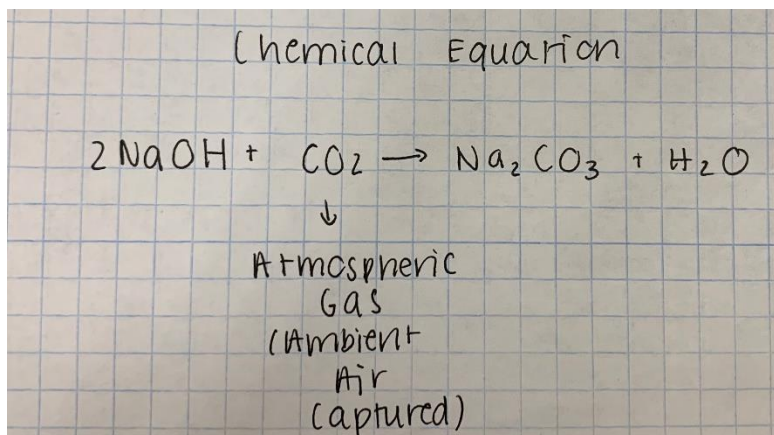 Chemical Equation
2 NaOH + CO2 → Na2 CO3 + H2O
↓
Atmospheric
Gas
(Ambient
Air
Captured)